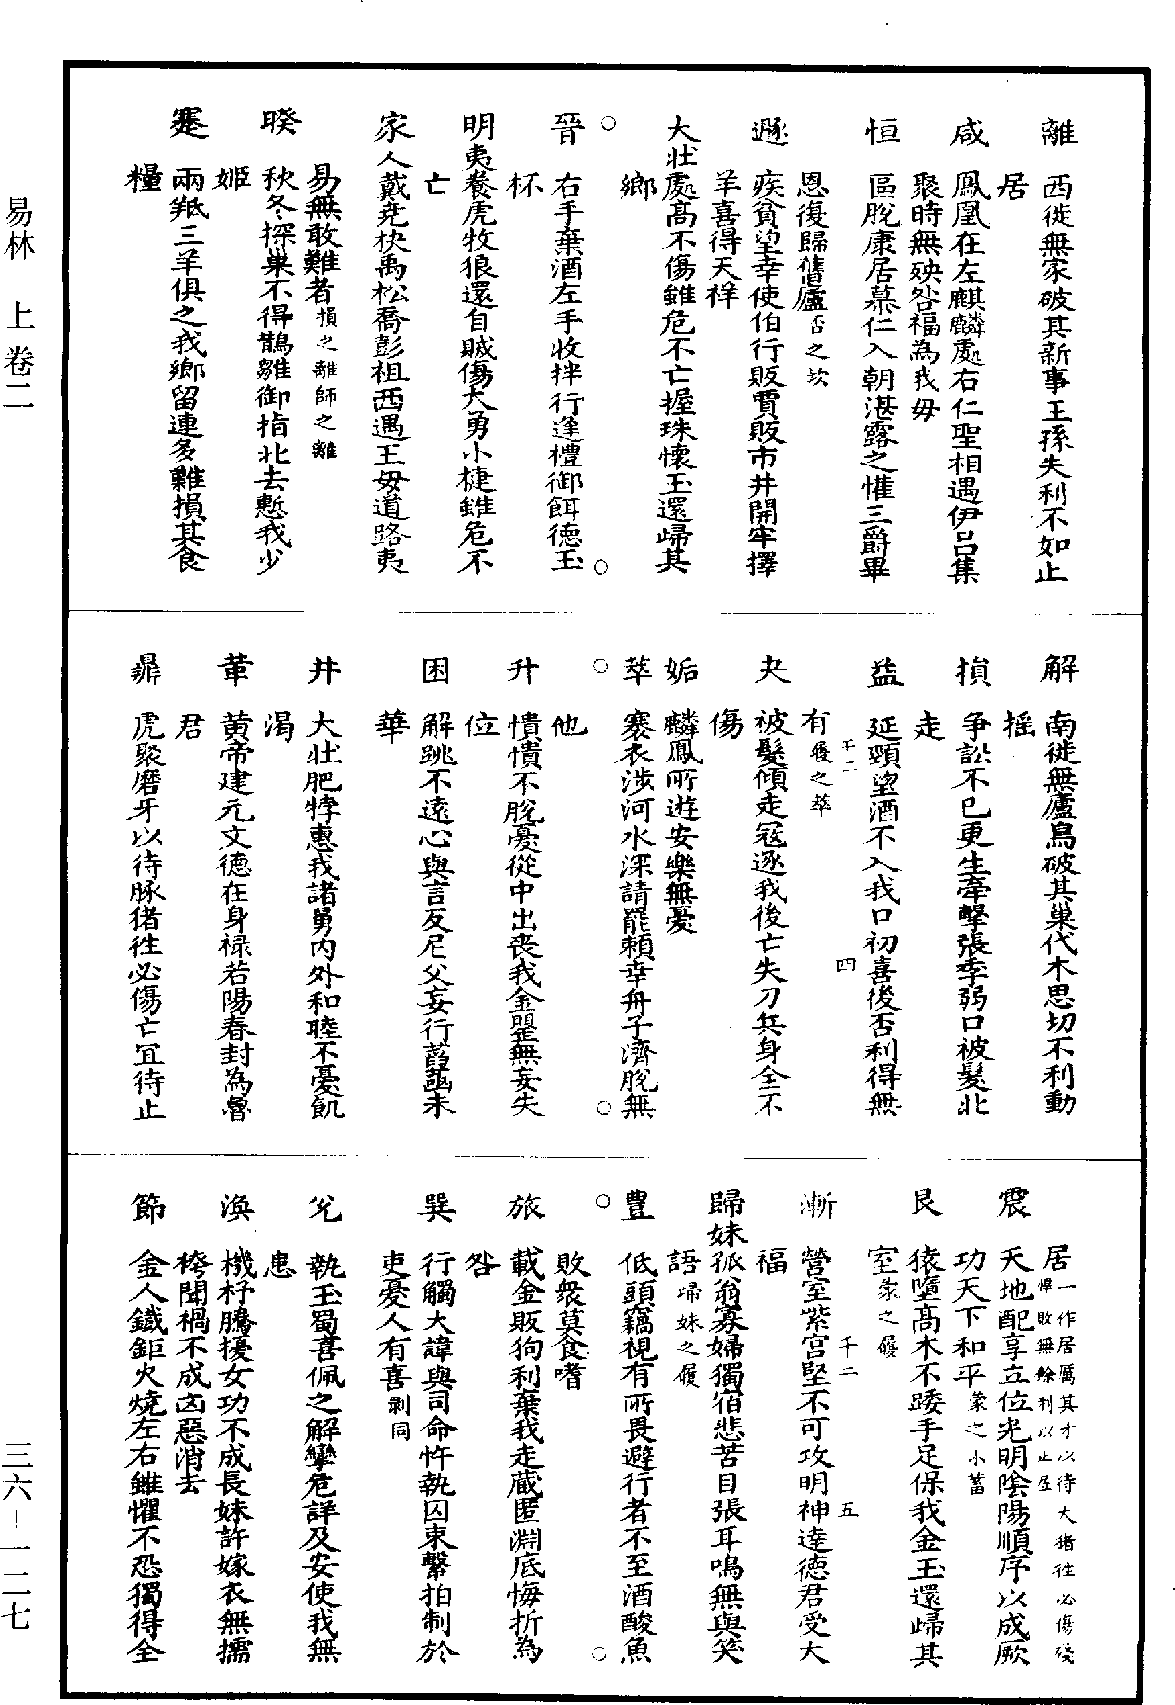 易林　上卷二
三六－一二七
離　西徙無家破其新事王孫失利不如止
居
咸　鳳凰在左麒麟處右仁聖相遇伊呂集
聚時無殃咎福為我母
恒　區脫康居慕仁入朝湛露之懽三爵畢
恩復歸舊廬否之坎
遯　疾貧望幸使伯行販賈販市井開牢擇
羊喜得天祥
大壯處高不傷雖危不亡握珠懷玉還歸其
鄉
○　○
晉　右手棄酒左手收拌行逢禮御餌德玉
杯
明夷養虎牧狼還自賊傷大勇小捷雖危不
亡
家人戴堯杖禹松喬彭祖西遇王母道路夷
易無敢難者損之離師之離
睽　秋冬探巢不得鵲雛御指北去慙我少
姬
蹇　兩羝三羊俱之我鄉留連多難損其食
糧
解　南徙無廬鳥破其巢代木思切不利動
搖
損　爭訟不已更生牽擊張季弱口被髮北
走
益　延頸望酒不入我口初喜後否利得無
有履之萃
千二　四
夬　被髮傾走寇逐我後亡失刀兵身全不
傷
姤　麟鳳所遊安樂無憂
○　○
萃　褰衣涉河水深請罷賴幸舟子濟脫無
他
升　憒憒不脫憂從中出喪我金罌無妄失
位
困　解跳不遠心與言反尼父妄行菡萏未
華
井　大壯肥牸惠我諸舅內外和睦不憂飢
渴
革　黃帝建元文德在身祿若陽春封為魯
君
鼎　虎聚磨牙以待豚猪往必傷亡宜待止
居一作居厲其才以待大猪往必傷殘
悍敗無餘利以止居
震　天地配享立位光明陰陽順序以成厥
功天下和平蒙之小蓄
艮　猿墮高木不踒手足保我金玉還歸其
室蒙之履
千二　五
漸　營室紫宮堅不可攻明神達德君受大
福
歸妹孤翁寡婦獨宿悲苦目張耳鳴無與笑
語歸妹之履
○　○
豐　低頭竊視有所畏避行者不至酒酸魚
敗衆莫食嗜
旅　載金販狗利棄我走藏匿淵底悔折為
咎
巽　行觸大諱與司命忤執囚束繫拍制於
吏憂人有喜剝同
兌　執玉蜀喜佩之解攣危詳及安使我無
患
渙　機杼騰擾女功不成長妹許嫁衣無襦
袴聞禍不成凶惡消去
節　金人鐵鉅火燒左右雖懼不恐獨得全